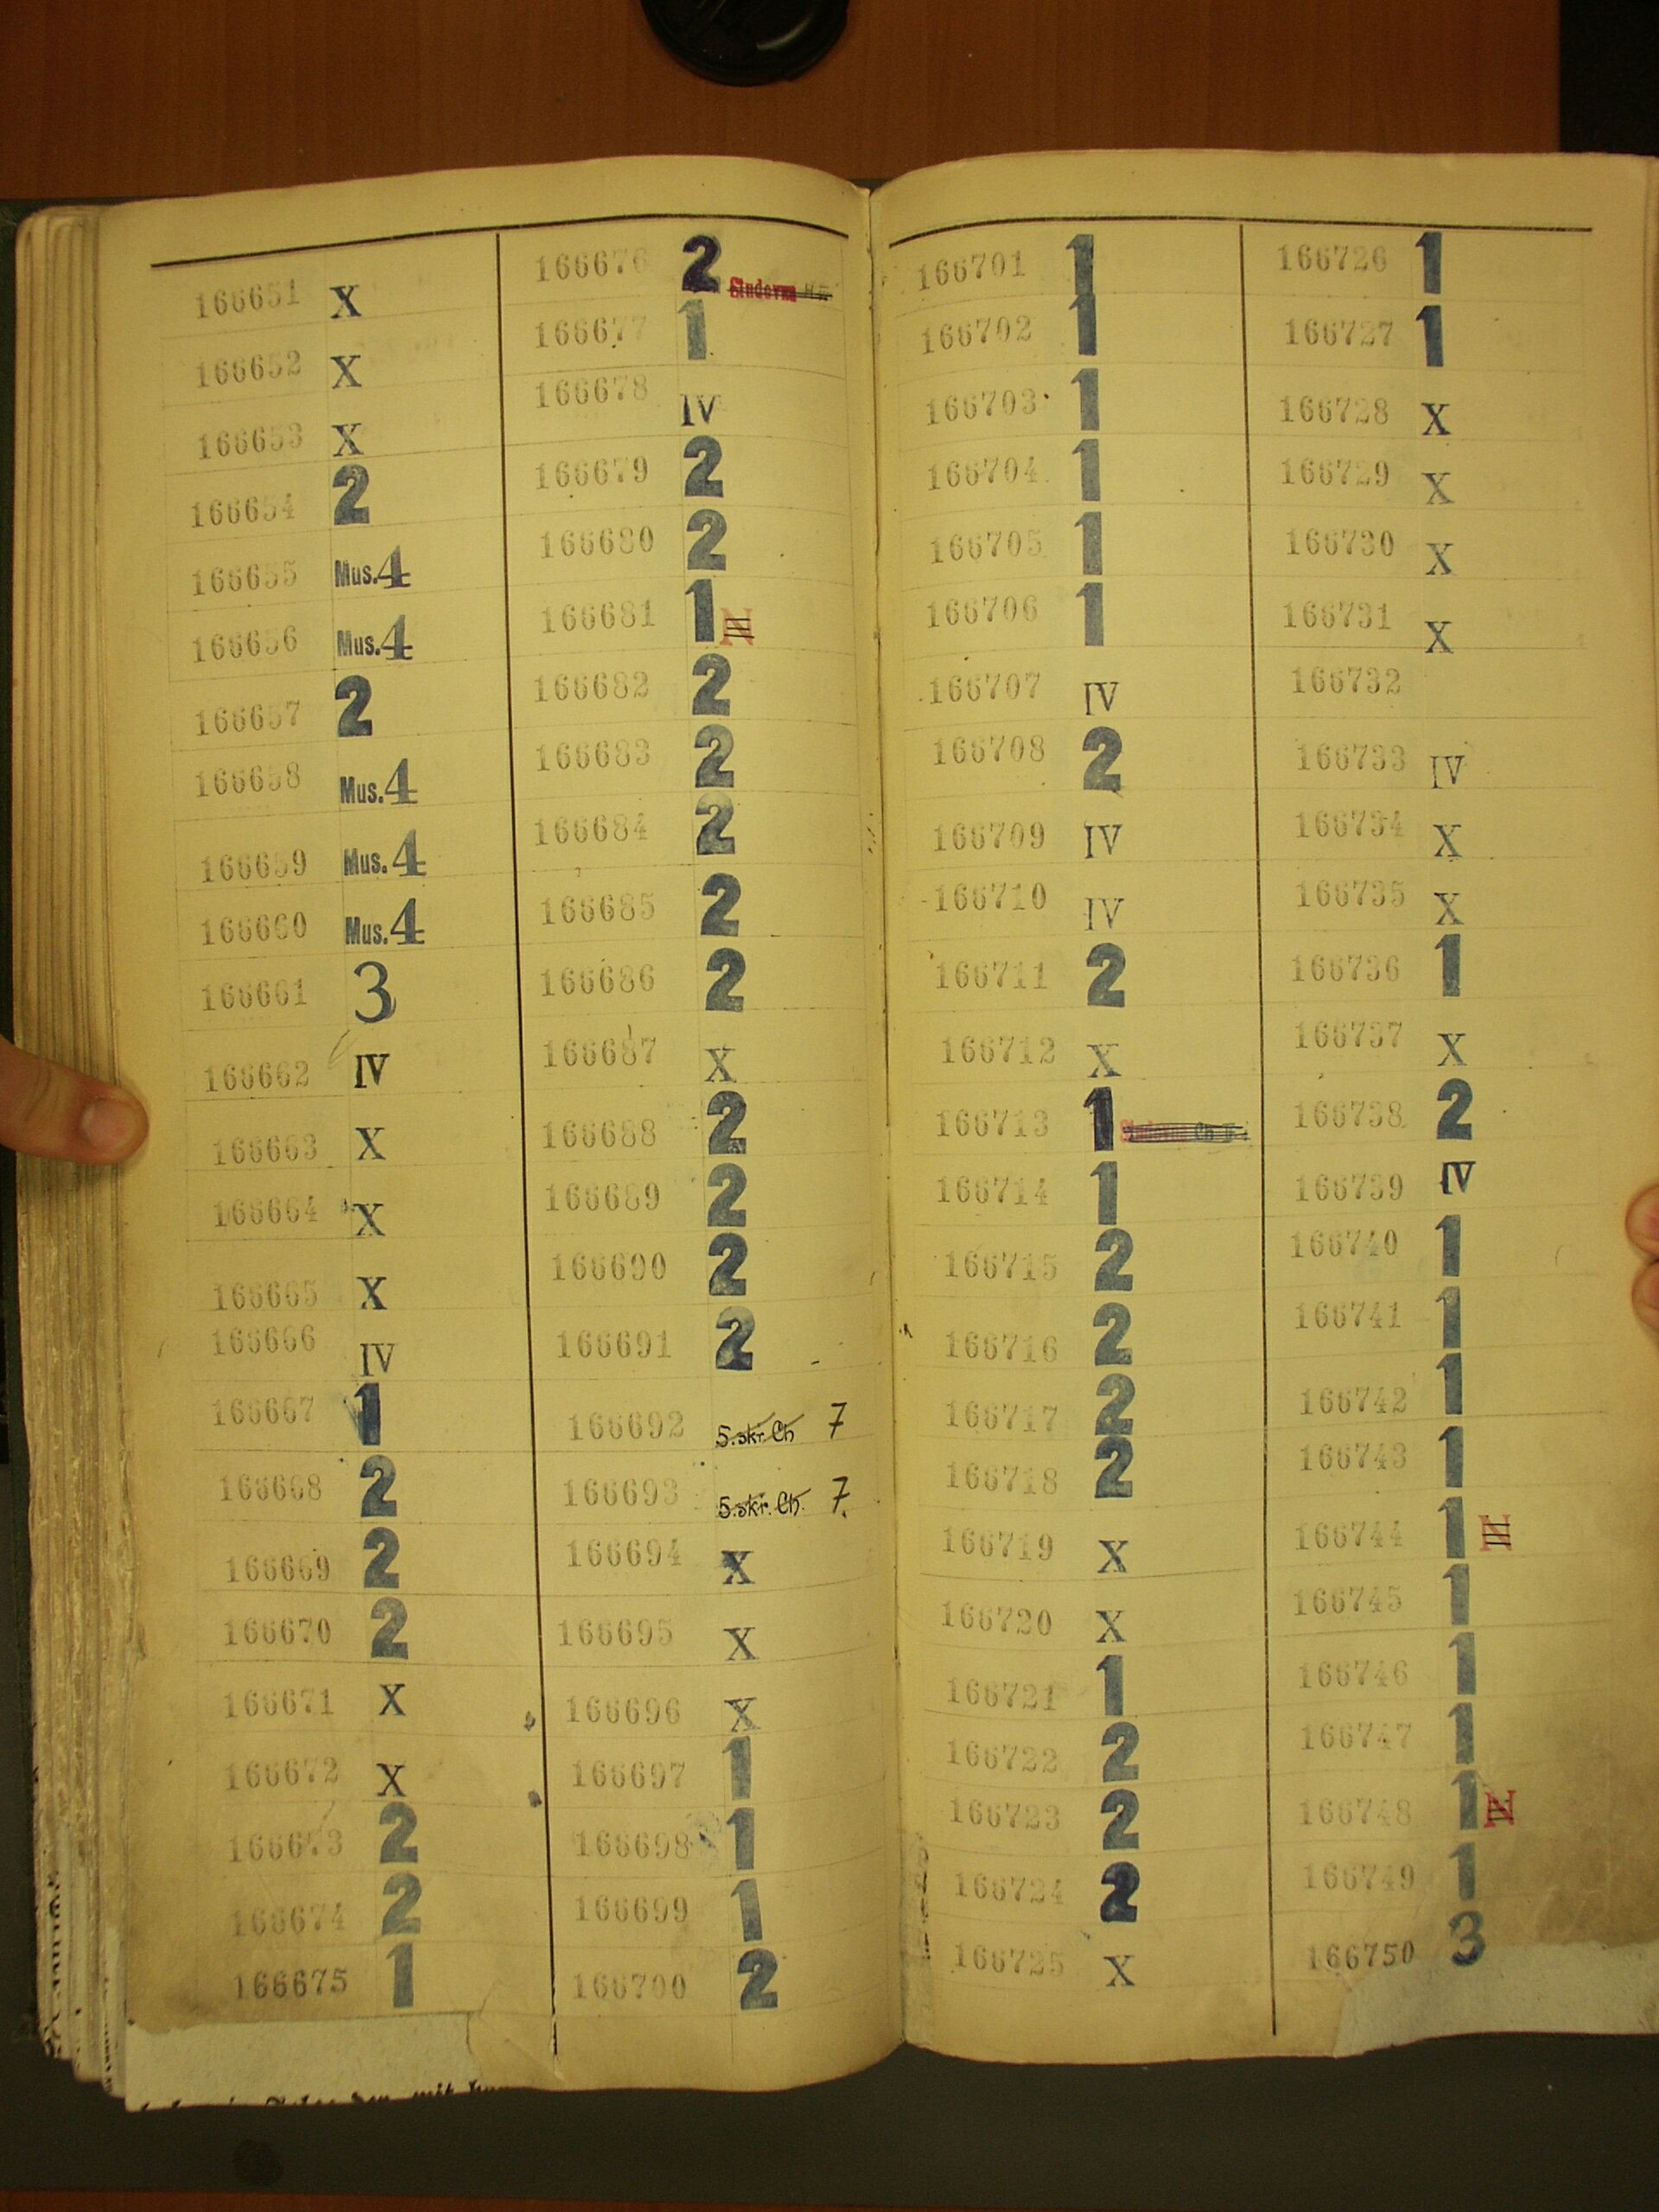 166651 X
166652 X
166653 X
166654 2
166655 Mus. 4
166656 Mus. 4
166657 2
166658 Mus. 4
166659 Mus. 4
166660 Mus. 4
166661 3
166662 IV
166663 X
166664 X
166665 X
166666 IV
166667 1
166668 2
166669 2
166670 2
166671 X
166672 X
166673 2
166674 2
166675 1
166676 2 Studovna
166677 1
166678 IV
166679 2
166680 2
166681 1 N
166682 2
166683 2
166684 2
166685 2
166686 2
166687 X
166688 2
166689 2
166690 2
166691 2
166692 5.skr.Ch 7
166693 5.skr.Ch. 7.
166694 X
166695 X
166696 X
166697 1
166698 1
166699 1
166700 2
166701 1
166702 1
166703 1
166704 1
166705 1
166706 1
166707 IV
166708 2
166709 IV
166710 IV
166711 2
166712 X
166713 1
166714 1
166715 2
166716 2
166717 2
166718 2
166719 X
166720 X
166721 1
166722 2
166723 2
166724 2
166725 X
166726 1
166727 1
166728 X
166729 X
166730 X
166731 X
166732
166733 IV
166734 X
166735 X
166736 1
166737 X
166738 2
166739 IV
166740 1
166741 1
166742 1
166743 1
166744 1 N
166745 1
166746 1
166747 1
166748 1 N
166749 1
166750 3